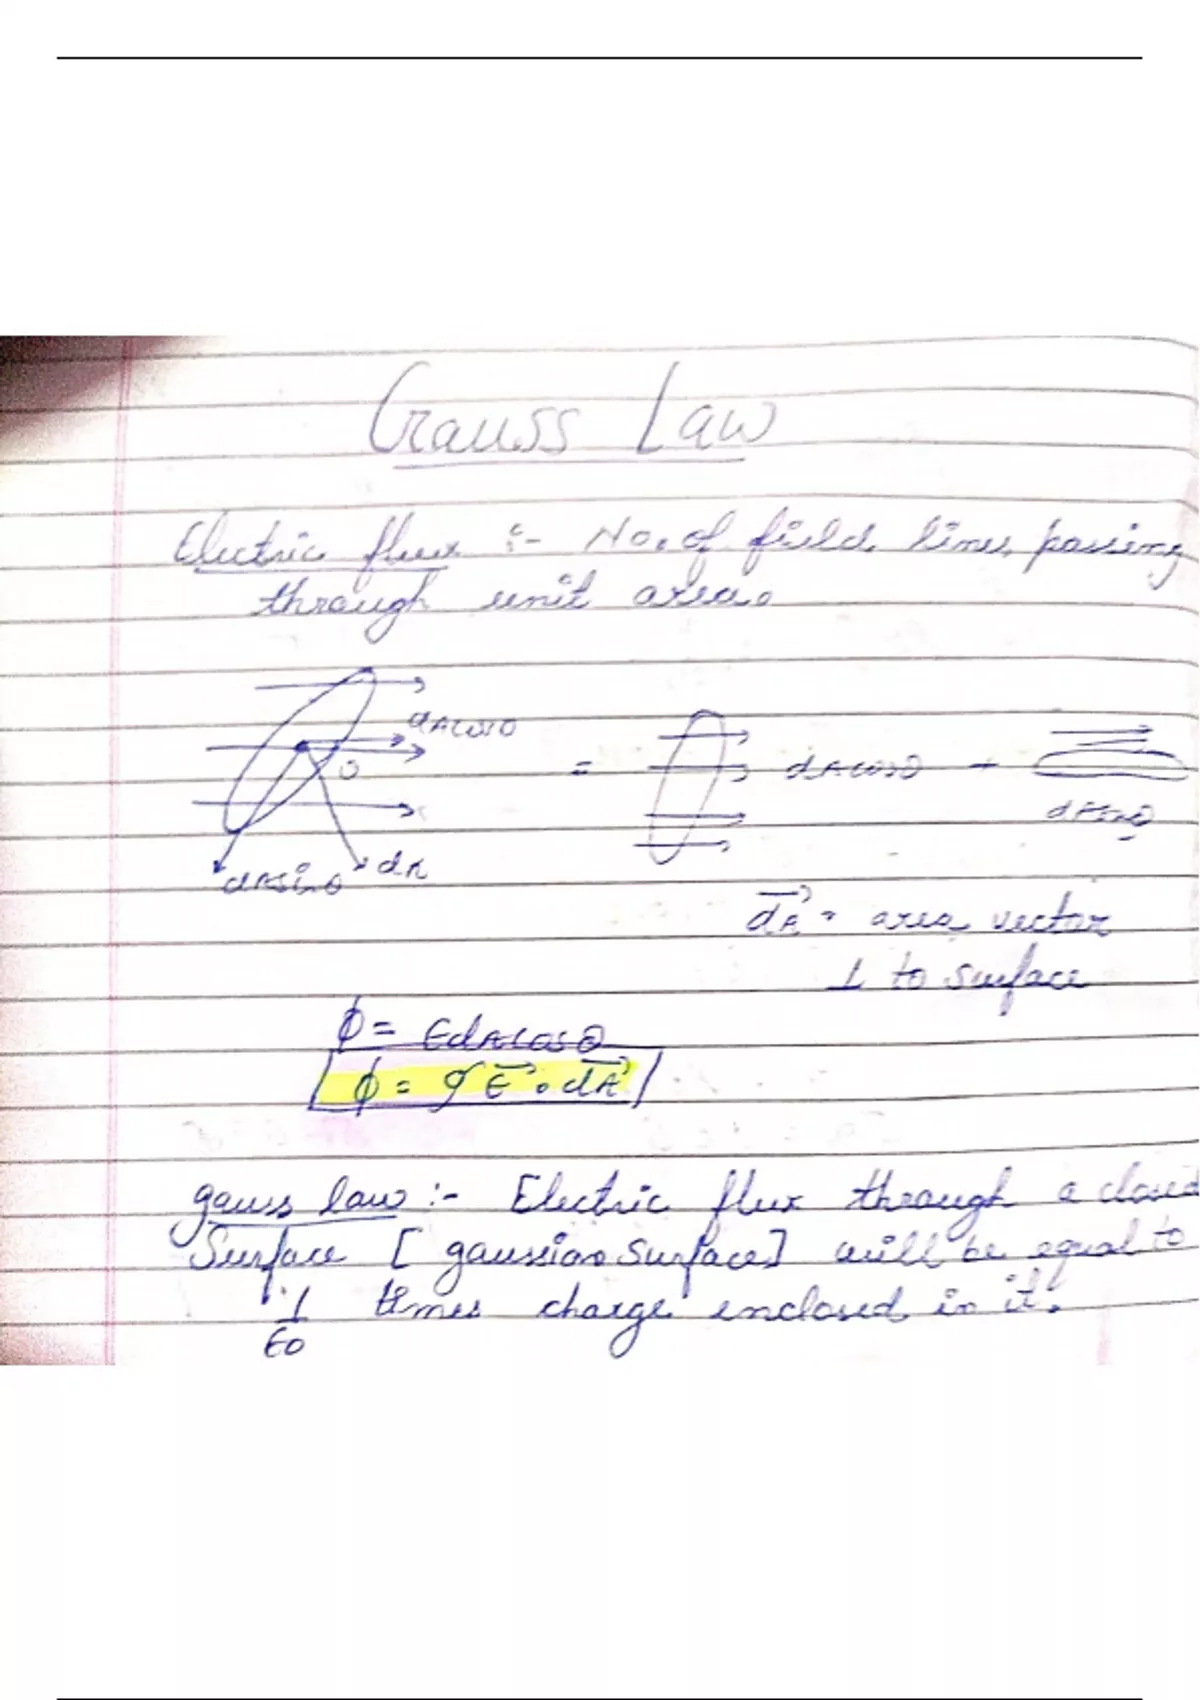 Gauss Law
Electric flux :- No. of field lines passing
through unit area.
dAcosθ
θ
= dAcosθ +
dAsinθ
dAsinθ dA
dA = area vector
⊥ to surface
ϕ = EdAcosθ
ϕ = ∮ E . dA
gauss law :- Electric flux through a closed
Surface [ gaussian Surface] will be equal to
1/ε0 times charge enclosed in it.